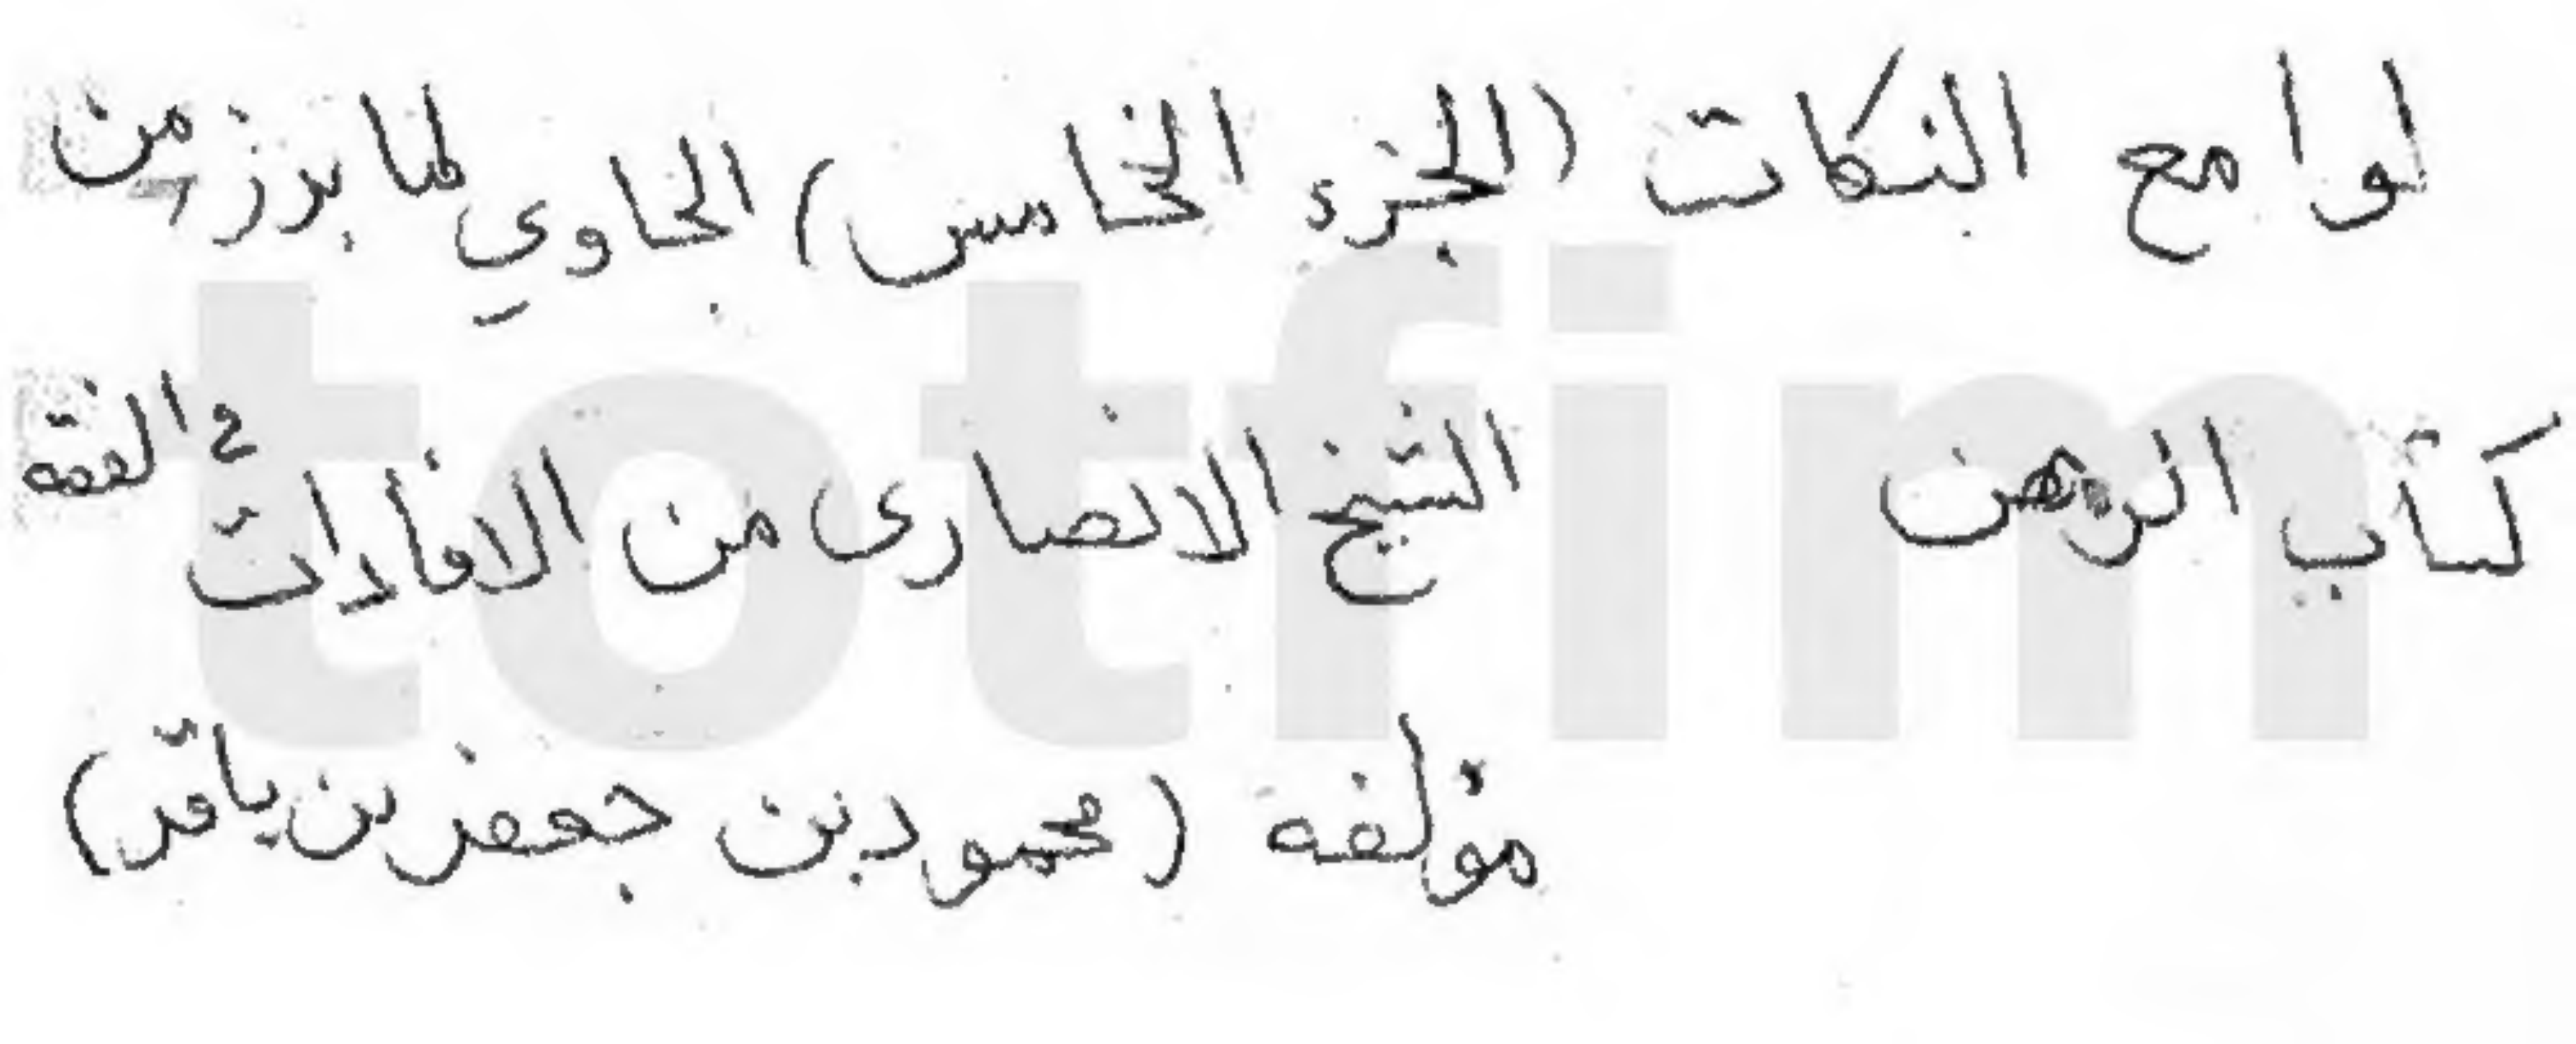 لوامع النكات (الجزء الخامس) الجاوي لما برز من
كتاب الرهن الشيخ الانصارى من الافادات في الفقه
مؤلفه (محمود بن جعفر بن باقر)
totfim